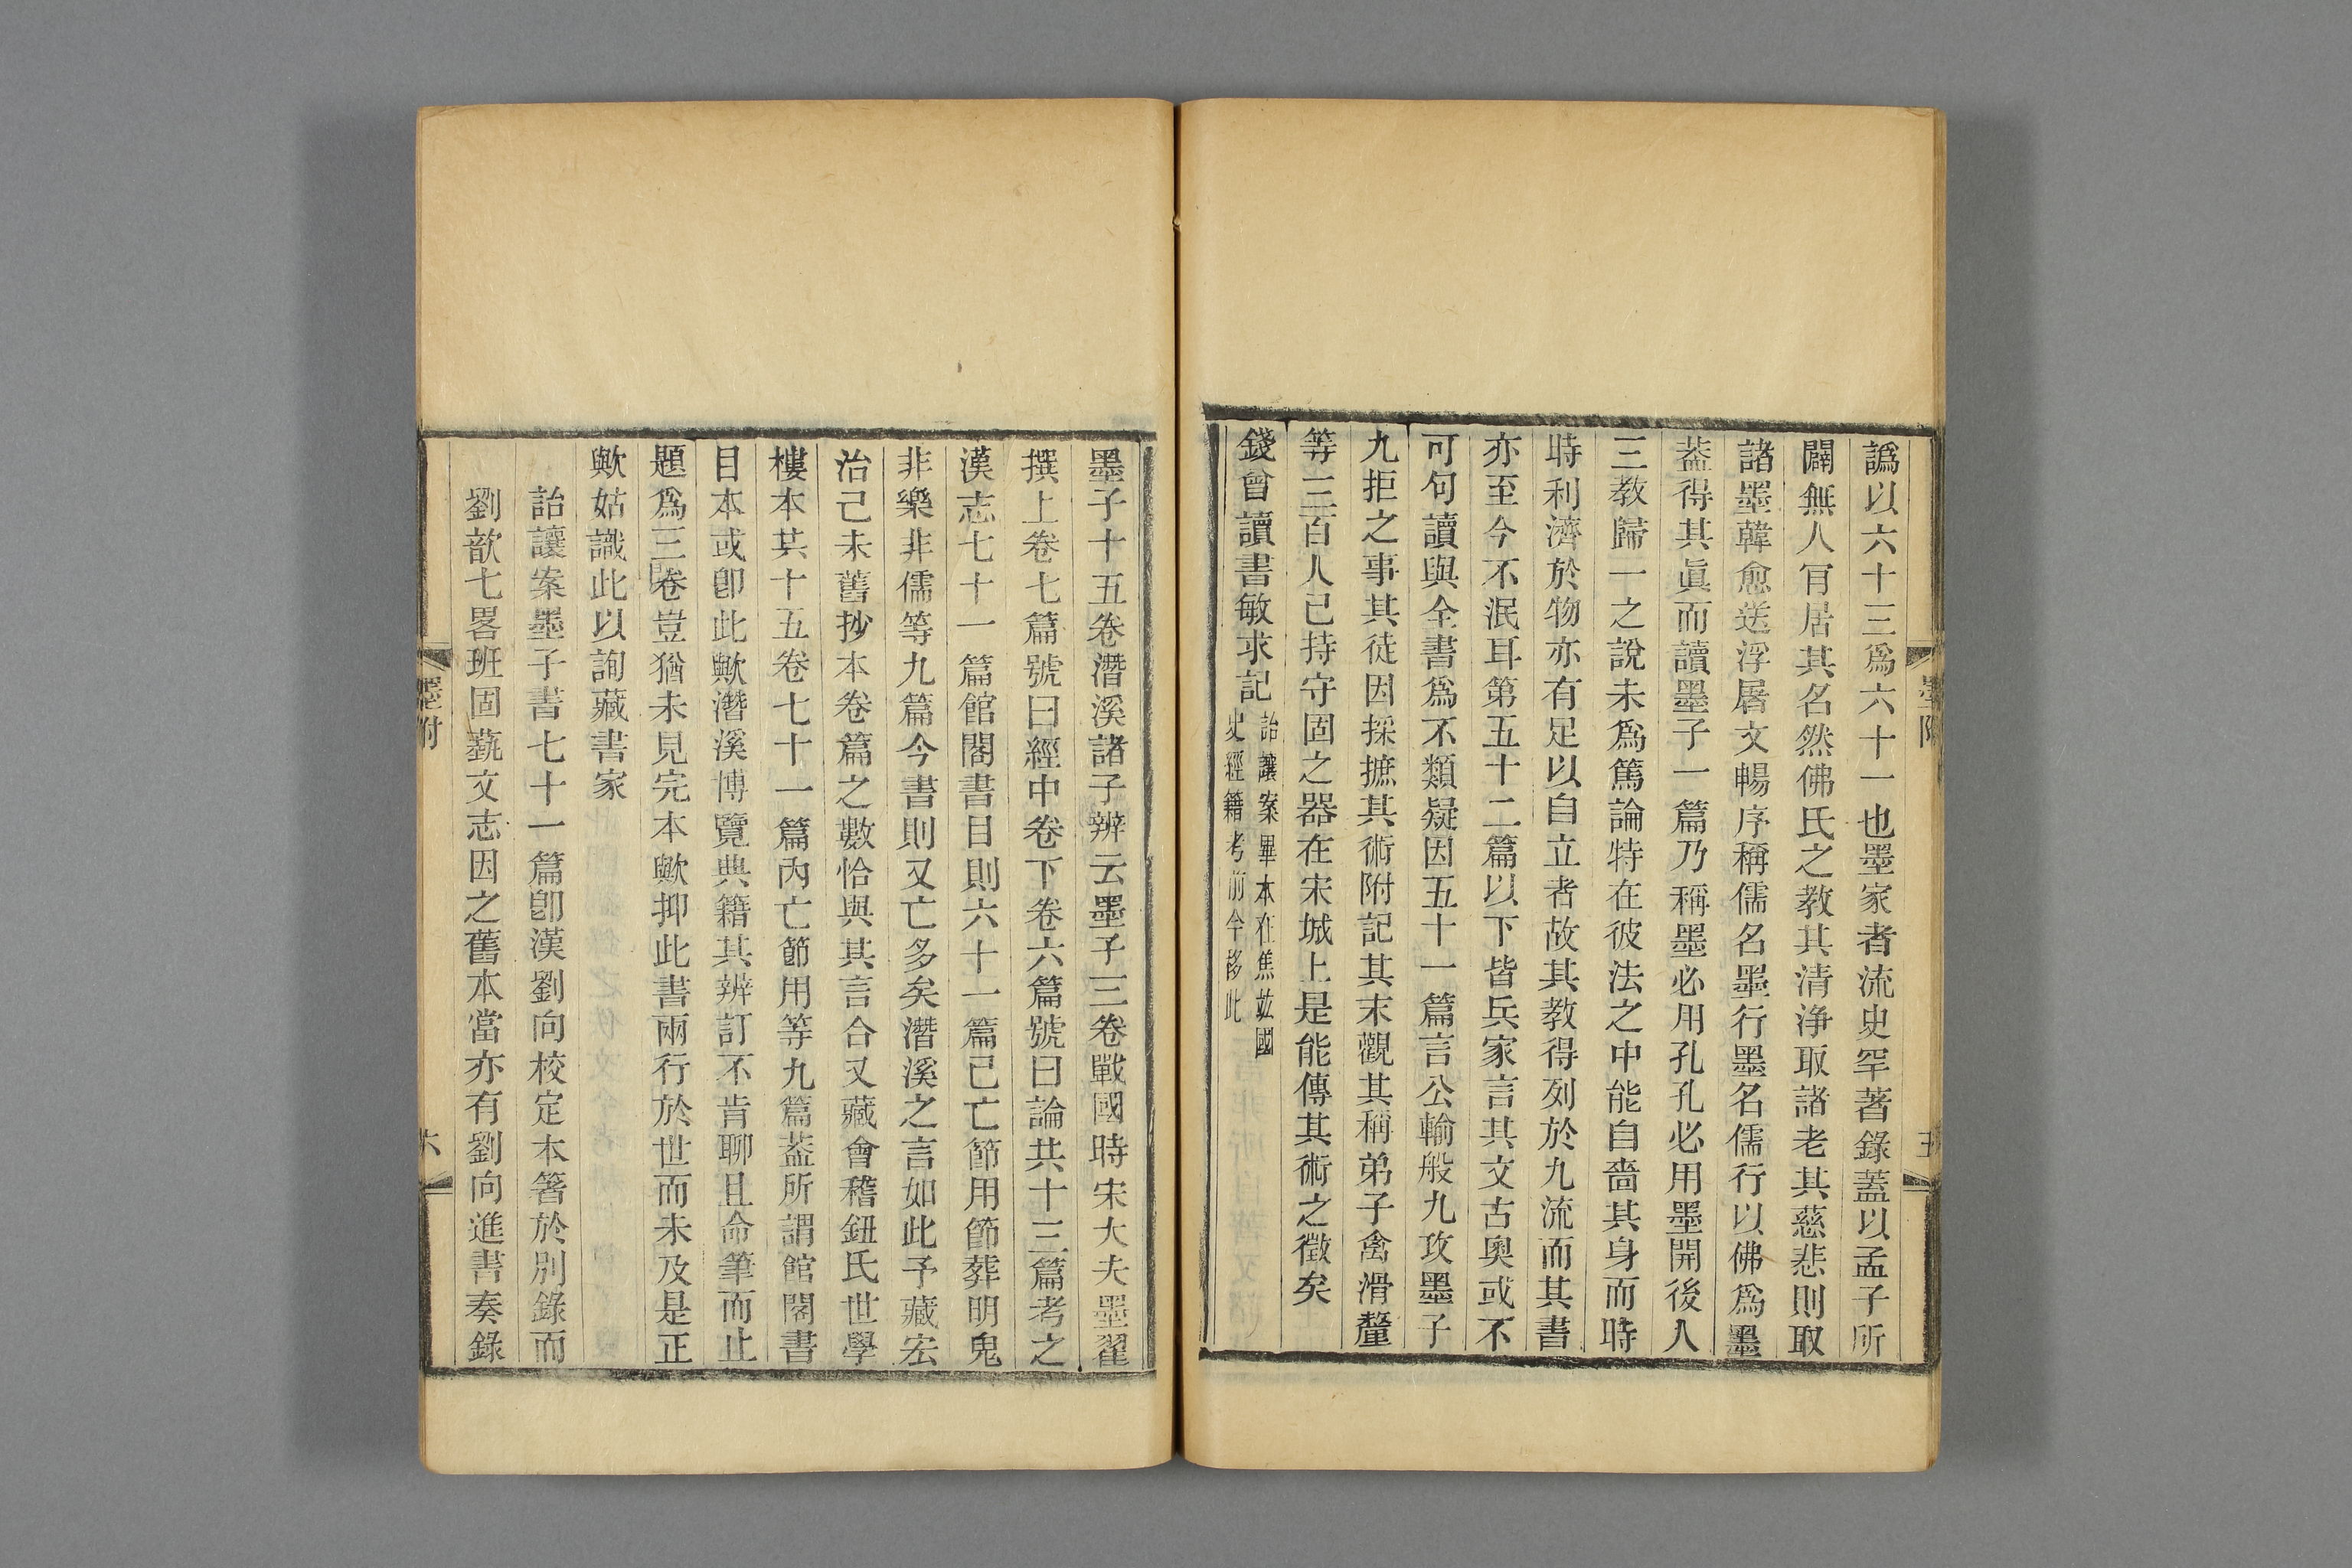 譌以六十三爲六十一也墨家者流史罕著錄蓋以孟子所
闢無人肎居其名然佛氏之教其清淨取諸老其慈悲則取
諸墨韓愈送浮屠文暢序稱儒名墨行墨名儒行以佛爲墨
葢得其眞而讀墨子一篇乃稱墨必用孔孔必用墨開後人
三教歸一之說未爲篤論特在彼法之中能自嗇其身而時
時利濟於物亦有足以自立者故其教得列於九流而其書
亦至今不泯耳第五十二篇以下皆兵家言其文古奧或不
可句讀與全書爲不類疑因五十一篇言公輸般九攻墨子
九拒之事其徒因採摭其術附記其末觀其稱弟子禽滑釐
等三百人已持守固之器在宋城上是能傳其術之徵矣
錢曾讀書敏求記詒讓案畢本在焦竑國
史經籍考前今移此
墨附
五
墨子十五卷潛溪諸子辨云墨子三卷戰國時宋大夫墨翟
撰上卷七篇號曰經中卷下卷六篇號曰論共十三篇考之
漢志七十一篇館閣書目則六十一篇已亡節用節葬明鬼
非樂非儒等九篇今書則又亡多矣潛溪之言如此予藏宏
治己未舊抄本卷篇之數恰與其言合又藏會稽鈕氏世學
樓本共十五卷七十一篇內亡節用等九篇葢所謂館閣書
目本或卽此歟潛溪博覽典籍其辨訂不肯聊且命筆而止
題爲三卷豈猶未見完本歟抑此書兩行於世而未及是正
歟姑識此以詢藏書家
詒讓案墨子書七十一篇卽漢劉向校定本箸於別錄而
劉歆七畧班固蓺文志因之舊本當亦有劉向進書奏錄
墨附
六